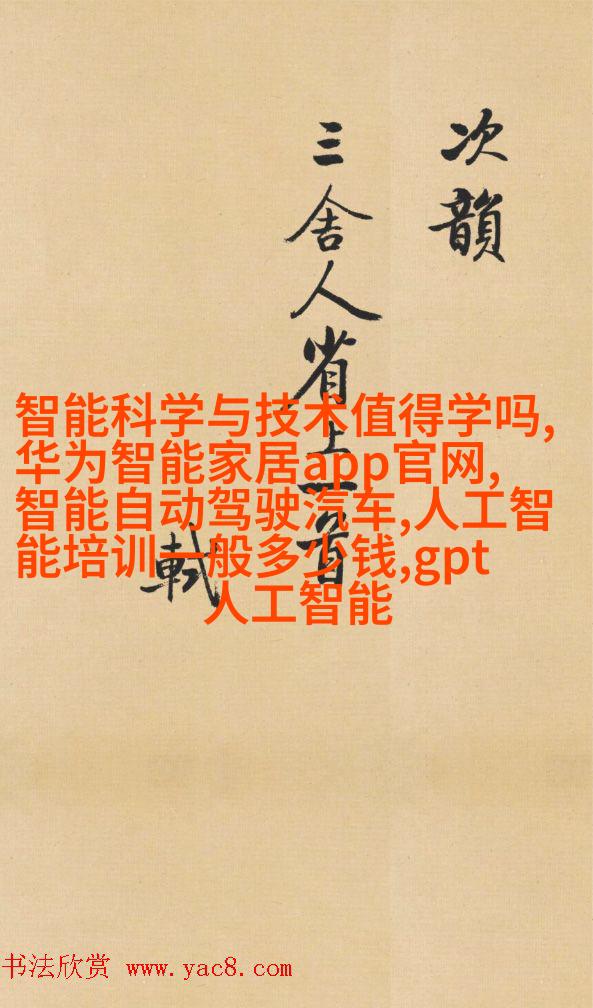 次韻
三舍人省上一首
軾
智能科学与技术值得学吗,
华为智能家居app官网,
智能自动驾驶汽车,人工智
能培训一般多少钱,gpt
人工智能
书法欣赏 www.yac8.com